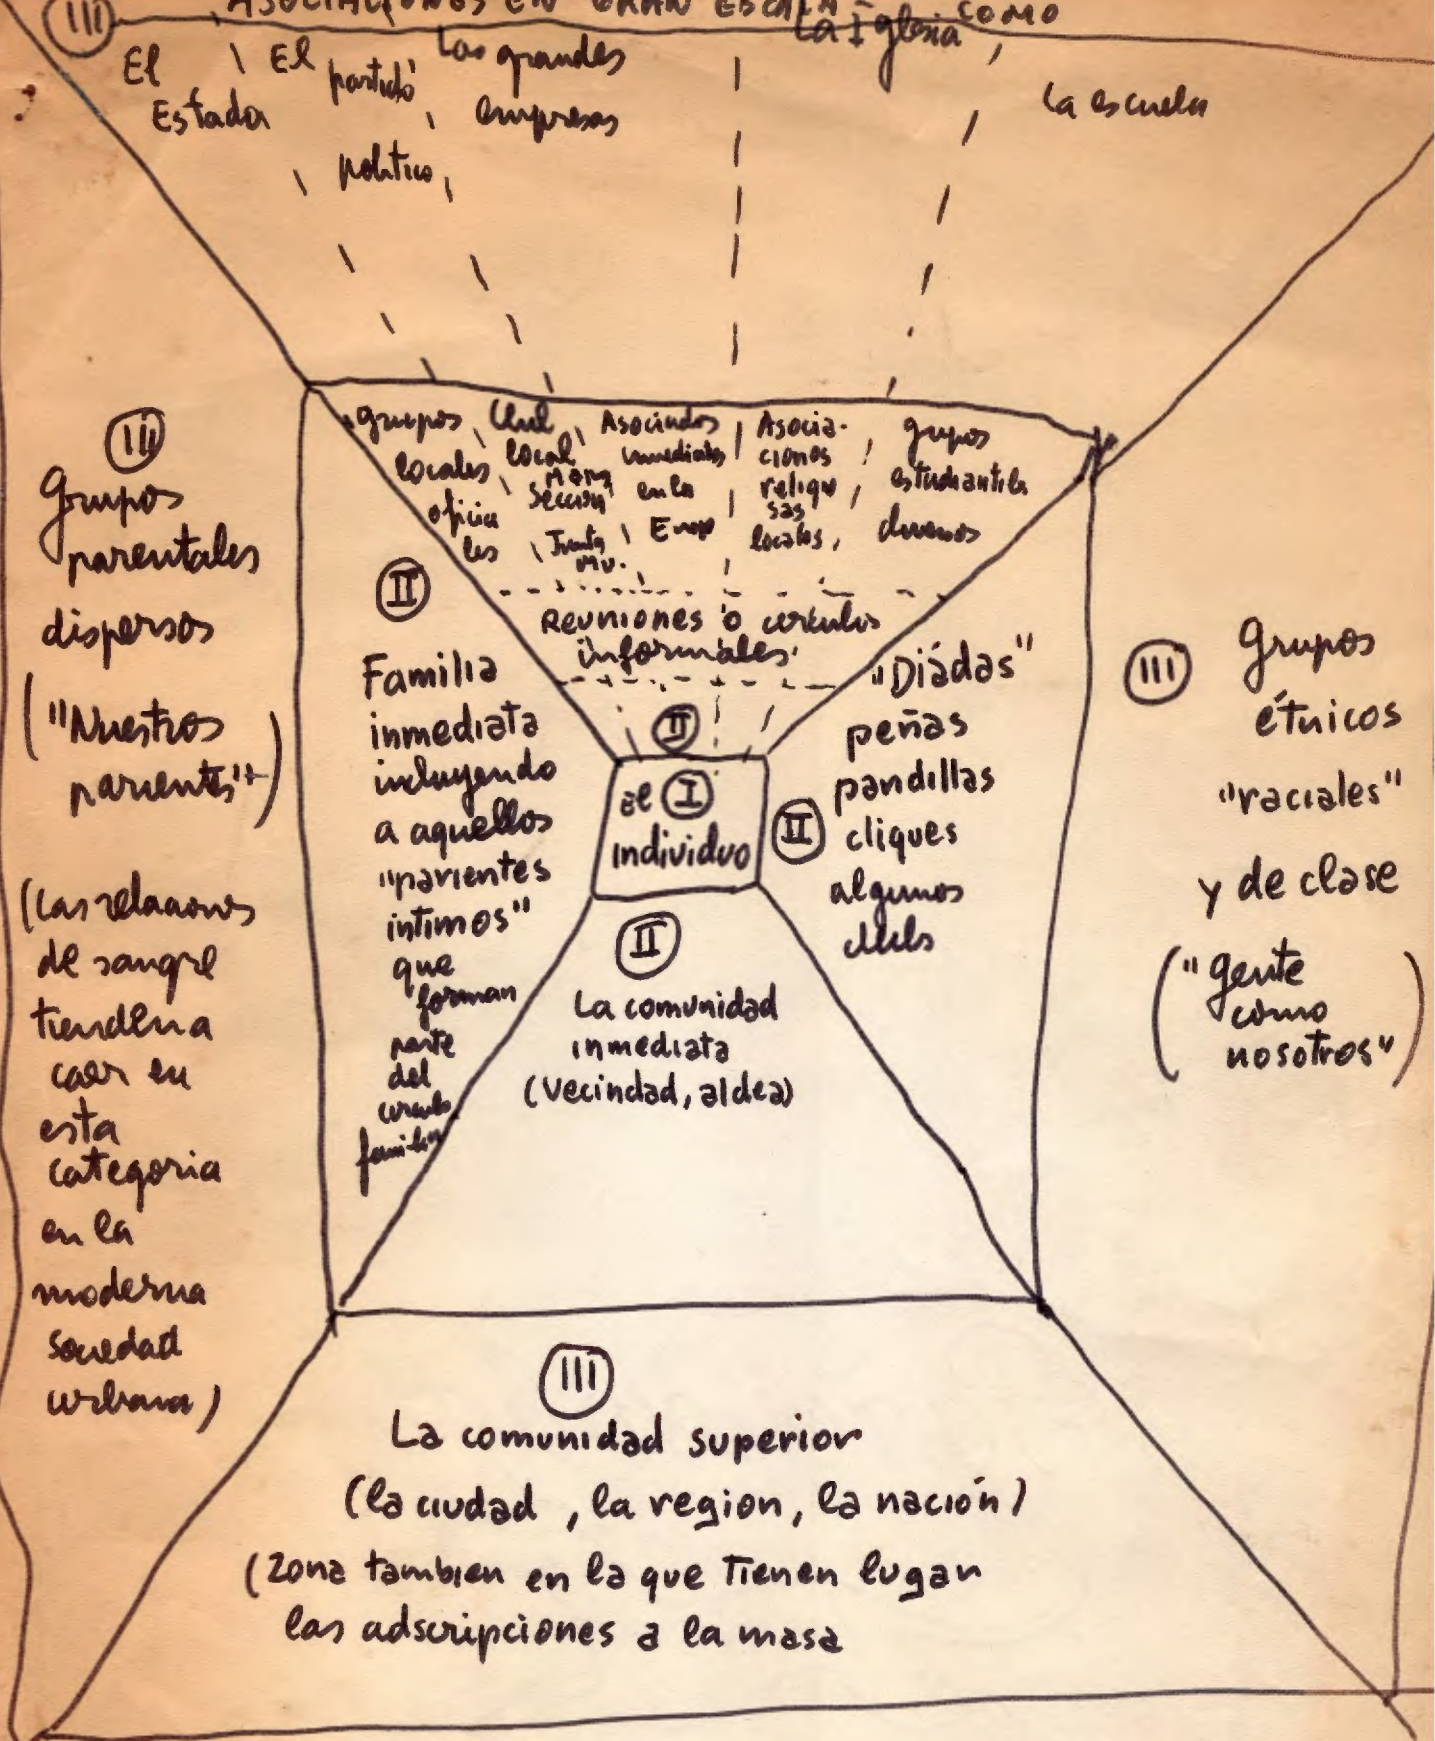 III
ASOCIACIONES EN GRAN ESCALA COMO
El
Estado
El
partido
político
Las grandes
empresas
La Iglesia
La escuela
grupos
locales
oficia
les
Club
local
sección
Junta
Asociados
inmediatos
en la
Asocia-
ciones
religio
sas
locales
grupos
estudiantiles
diversos
Reuniones o círculos
informales
II
III
Grupos
parentales
dispersos
("Nuestros
parientes")
(Las relaciones
de sangre
tienden a
caer en
esta
categoria
en la
moderna
sociedad
urbana)
II
Familia
inmediata
incluyendo
a aquellos
"parientes
intimos"
que
forman
parte
del
circulo
familiar
el I
individuo
II
"Diádas"
peñas
pandillas
cliques
algunos
clubs
II
La comunidad
inmediata
(vecindad, aldea)
III
Grupos
étnicos
"raciales"
y de clase
("gente
como
nosotros")
III
La comunidad superior
(la ciudad, la region, la nación)
(Zona tambien en la que Tienen lugar
las adscripciones a la masa